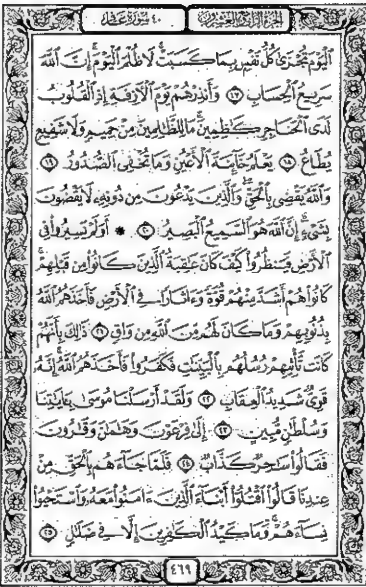 ٤٠ سورة غافر
الجزء الرابع والعشرون
ٱلۡيَوۡمَ تُجۡزَىٰ كُلُّ نَفۡسِۭ بِمَا كَسَبَتۡۚ لَا ظُلۡمَ ٱلۡيَوۡمَۚ إِنَّ ٱللَّهَ
سَرِيعُ ٱلۡحِسَابِ ١٧ وَأَنذِرۡهُمۡ يَوۡمَ ٱلۡأٓزِفَةِ إِذِ ٱلۡقُلُوبُ
لَدَى ٱلۡحَنَاجِرِ كَٰظِمِينَۚ مَا لِلظَّٰلِمِينَ مِنۡ حَمِيمٖ وَلَا شَفِيعٖ
يُطَاعُ ١٨ يَعۡلَمُ خَآئِنَةَ ٱلۡأَعۡيُنِ وَمَا تُخۡفِي ٱلصُّدُورُ ١٩
وَٱللَّهُ يَقۡضِي بِٱلۡحَقِّۖ وَٱلَّذِينَ يَدۡعُونَ مِن دُونِهِۦ لَا يَقۡضُونَ
بِشَيۡءٍۗ إِنَّ ٱللَّهَ هُوَ ٱلسَّمِيعُ ٱلۡبَصِيرُ ٢٠ ۞ أَوَلَمۡ يَسِيرُواْ فِي
ٱلۡأَرۡضِ فَيَنظُرُواْ كَيۡفَ كَانَ عَٰقِبَةُ ٱلَّذِينَ كَانُواْ مِن قَبۡلِهِمۡۚ
كَانُواْ هُمۡ أَشَدَّ مِنۡهُمۡ قُوَّةٗ وَءَاثَارٗا فِي ٱلۡأَرۡضِ فَأَخَذَهُمُ ٱللَّهُ
بِذُنُوبِهِمۡ وَمَا كَانَ لَهُم مِّنَ ٱللَّهِ مِن وَاقٖ ٢١ ذَٰلِكَ بِأَنَّهُمۡ
كَانَت تَّأۡتِيهِمۡ رُسُلُهُم بِٱلۡبَيِّنَٰتِ فَكَفَرُواْ فَأَخَذَهُمُ ٱللَّهُۚ إِنَّهُۥ
قَوِيّٞ شَدِيدُ ٱلۡعِقَابِ ٢٢ وَلَقَدۡ أَرۡسَلۡنَا مُوسَىٰ بِـَٔايَٰتِنَا
وَسُلۡطَٰنٖ مُّبِينٍ ٢٣ إِلَىٰ فِرۡعَوۡنَ وَهَٰمَٰنَ وَقَٰرُونَ
فَقَالُواْ سَٰحِرٞ كَذَّابٞ ٢٤ فَلَمَّا جَآءَهُم بِٱلۡحَقِّ مِنۡ
عِندِنَا قَالُواْ ٱقۡتُلُوٓاْ أَبۡنَآءَ ٱلَّذِينَ ءَامَنُواْ مَعَهُۥ وَٱسۡتَحۡيُواْ
نِسَآءَهُمۡۚ وَمَا كَيۡدُ ٱلۡكَٰفِرِينَ إِلَّا فِي ضَلَٰلٖ ٢٥
٤٦٩